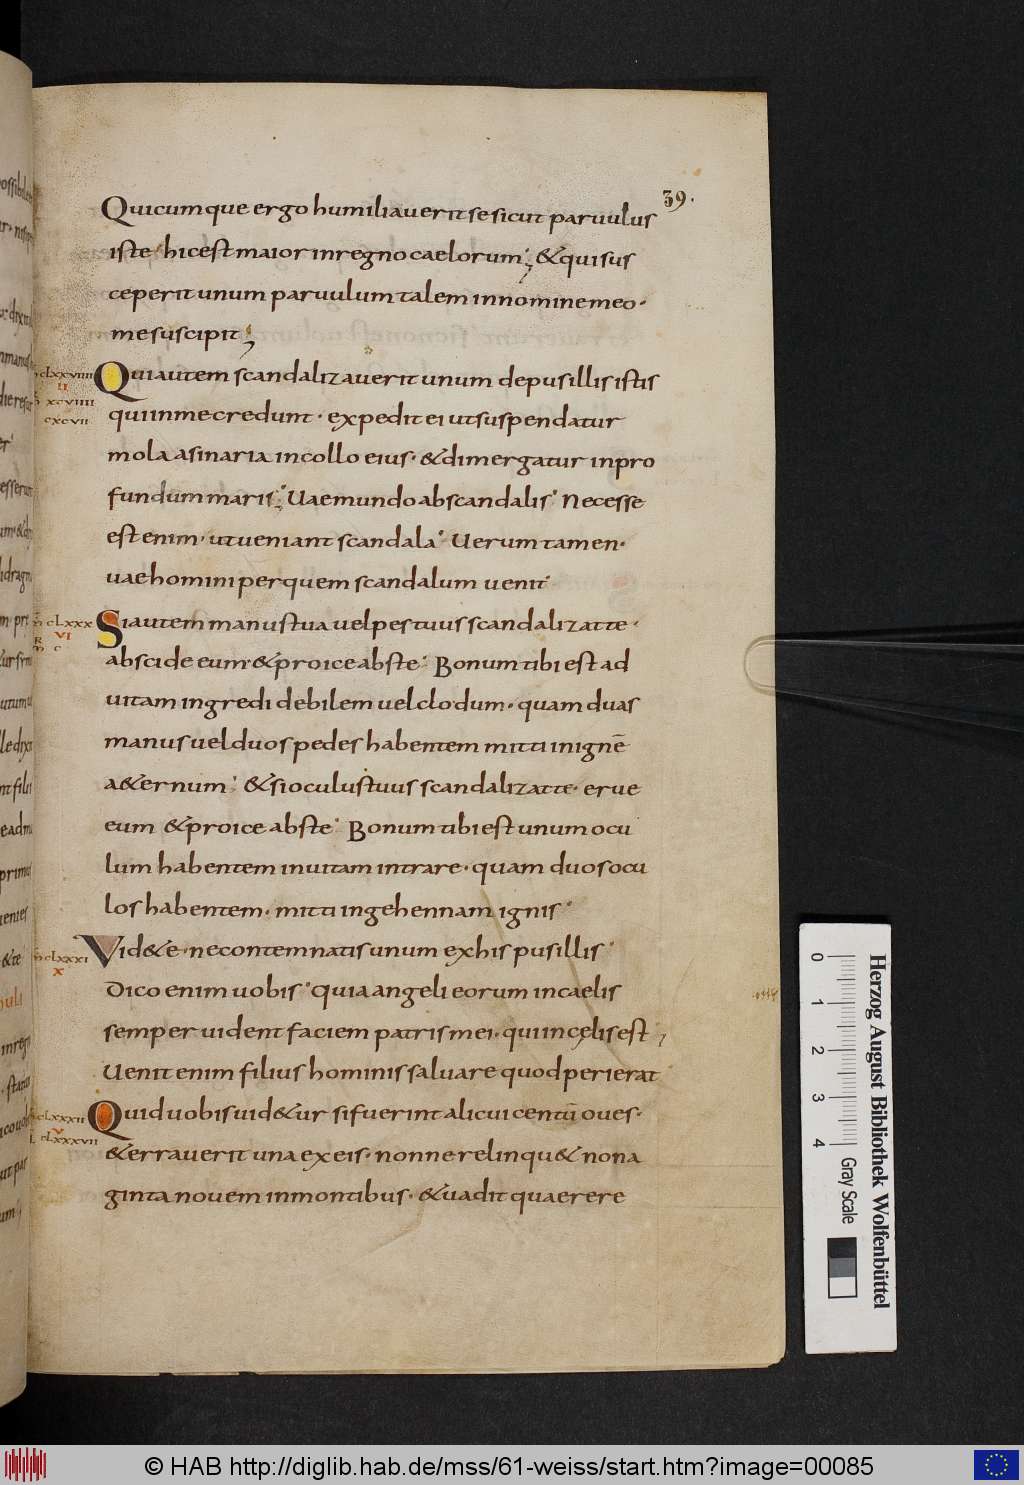 39.
Quicumque ergo humiliaverit se sicut paruulus
iste· hic est maior in regno caelorum; & qui sus
ceperit unum paruulum talem in nomine meo·
me suscipit;
CLXXVIIII
II
XCVIIII
CXCVII
Qui autem scandalizaverit unum de pusillis istis
qui in me credunt· expedit ei ut suspendatur
mola asinaria in collo eius· & dimergatur in pro
fundum maris; Uae mundo ab scandalis· Necesse
est enim· ut veniant scandala· Uerum tamen·
uae homini per quem scandalum venit·
CLXXX
VI
C
Si autem manus tua vel pes tuus scandalizat te·
abscide eum· & proice abs te· Bonum tibi est ad
uitam ingredi debilem vel clodum· quam duas
manus vel duos pedes habentem mitti in ignē
a&ernum· & si oculus tuus scandalizat te· erue
eum & proice abs te· Bonum tibi est unum ocu
lum habentem in uitam intrare· quam duos ocu
los habentem· mitti in gehennam ignis·
CLXXXI
X
Vid&e· ne contemnatis unum ex his pusillis·
Dico enim uobis· quia angeli eorum in caelis
semper uident faciem patris mei· qui in cęlis est;
Uenit enim filius hominis saluare quod perierat
CLXXXII
V
CLXXXVII
Quid uobis uid&ur si fuerint alicui centū oues·
& erraverit una ex eis· nonne relinqu& nona
ginta novem in montibus· & uadit quaerere
0 1 2 3 4
Gray Scale
Herzog August Bibliothek Wolfenbüttel
© HAB http://diglib.hab.de/mss/61-weiss/start.htm?image=00085